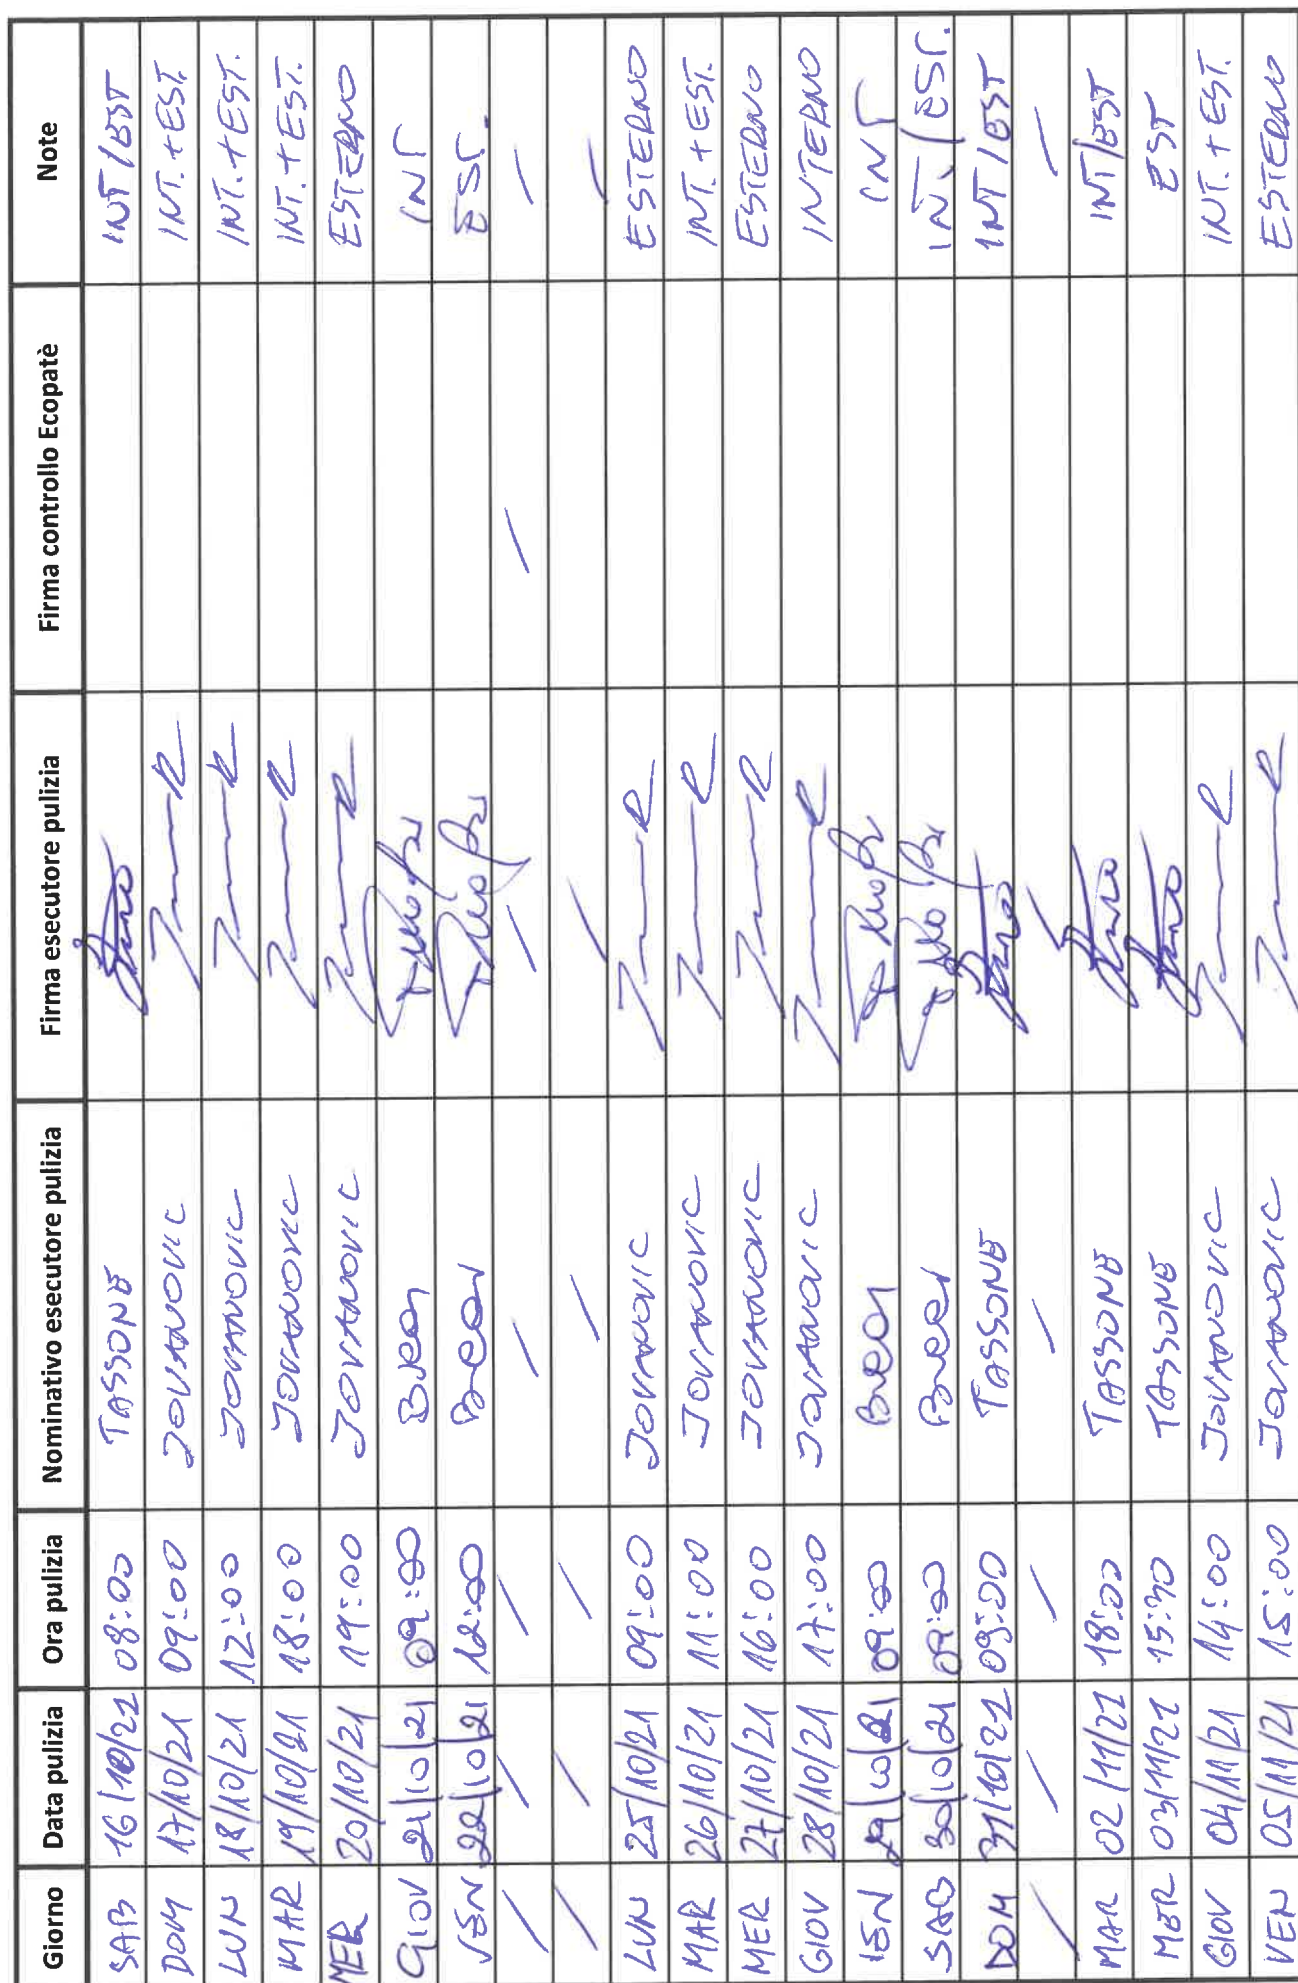 Giorno Data pulizia Ora pulizia Nominativo esecutore pulizia Firma esecutore pulizia Firma controllo Ecopatè Note
SAB 16/10/21 08:00 TASSONE INT/EST
DOM 17/10/21 09:00 JOVANOVIC INT.+EST.
LUN 18/10/21 12:00 JOVANOVIC INT.+EST.
MAR 19/10/21 18:00 JOVANOVIC INT.+EST.
MER 20/10/21 19:00 JOVANOVIC ESTERNO
GIOV 21/10/21 09:00 INT
VEN 22/10/21 12:00 EST.
/ / / / / / /
/ / / / / /
LUN 25/10/21 09:00 JOVANOVIC ESTERNO
MAR 26/10/21 11:00 JOVANOVIC INT.+EST.
MER 27/10/21 16:00 JOVANOVIC ESTERNO
GIOV 28/10/21 17:00 JOVANOVIC INTERNO
VEN 29/10/21 09:00 INT
SAB 30/10/21 09:00 INT./EST.
DOM 31/10/21 09:00 TASSONE INT/EST
/ / / / / /
MAR 02/11/21 18:00 TASSONE INT/EST
MER 03/11/21 15:30 TASSONE EST
GIOV 04/11/21 14:00 JOVANOVIC INT.+EST.
VEN 05/11/21 15:00 JOVANOVIC ESTERNO